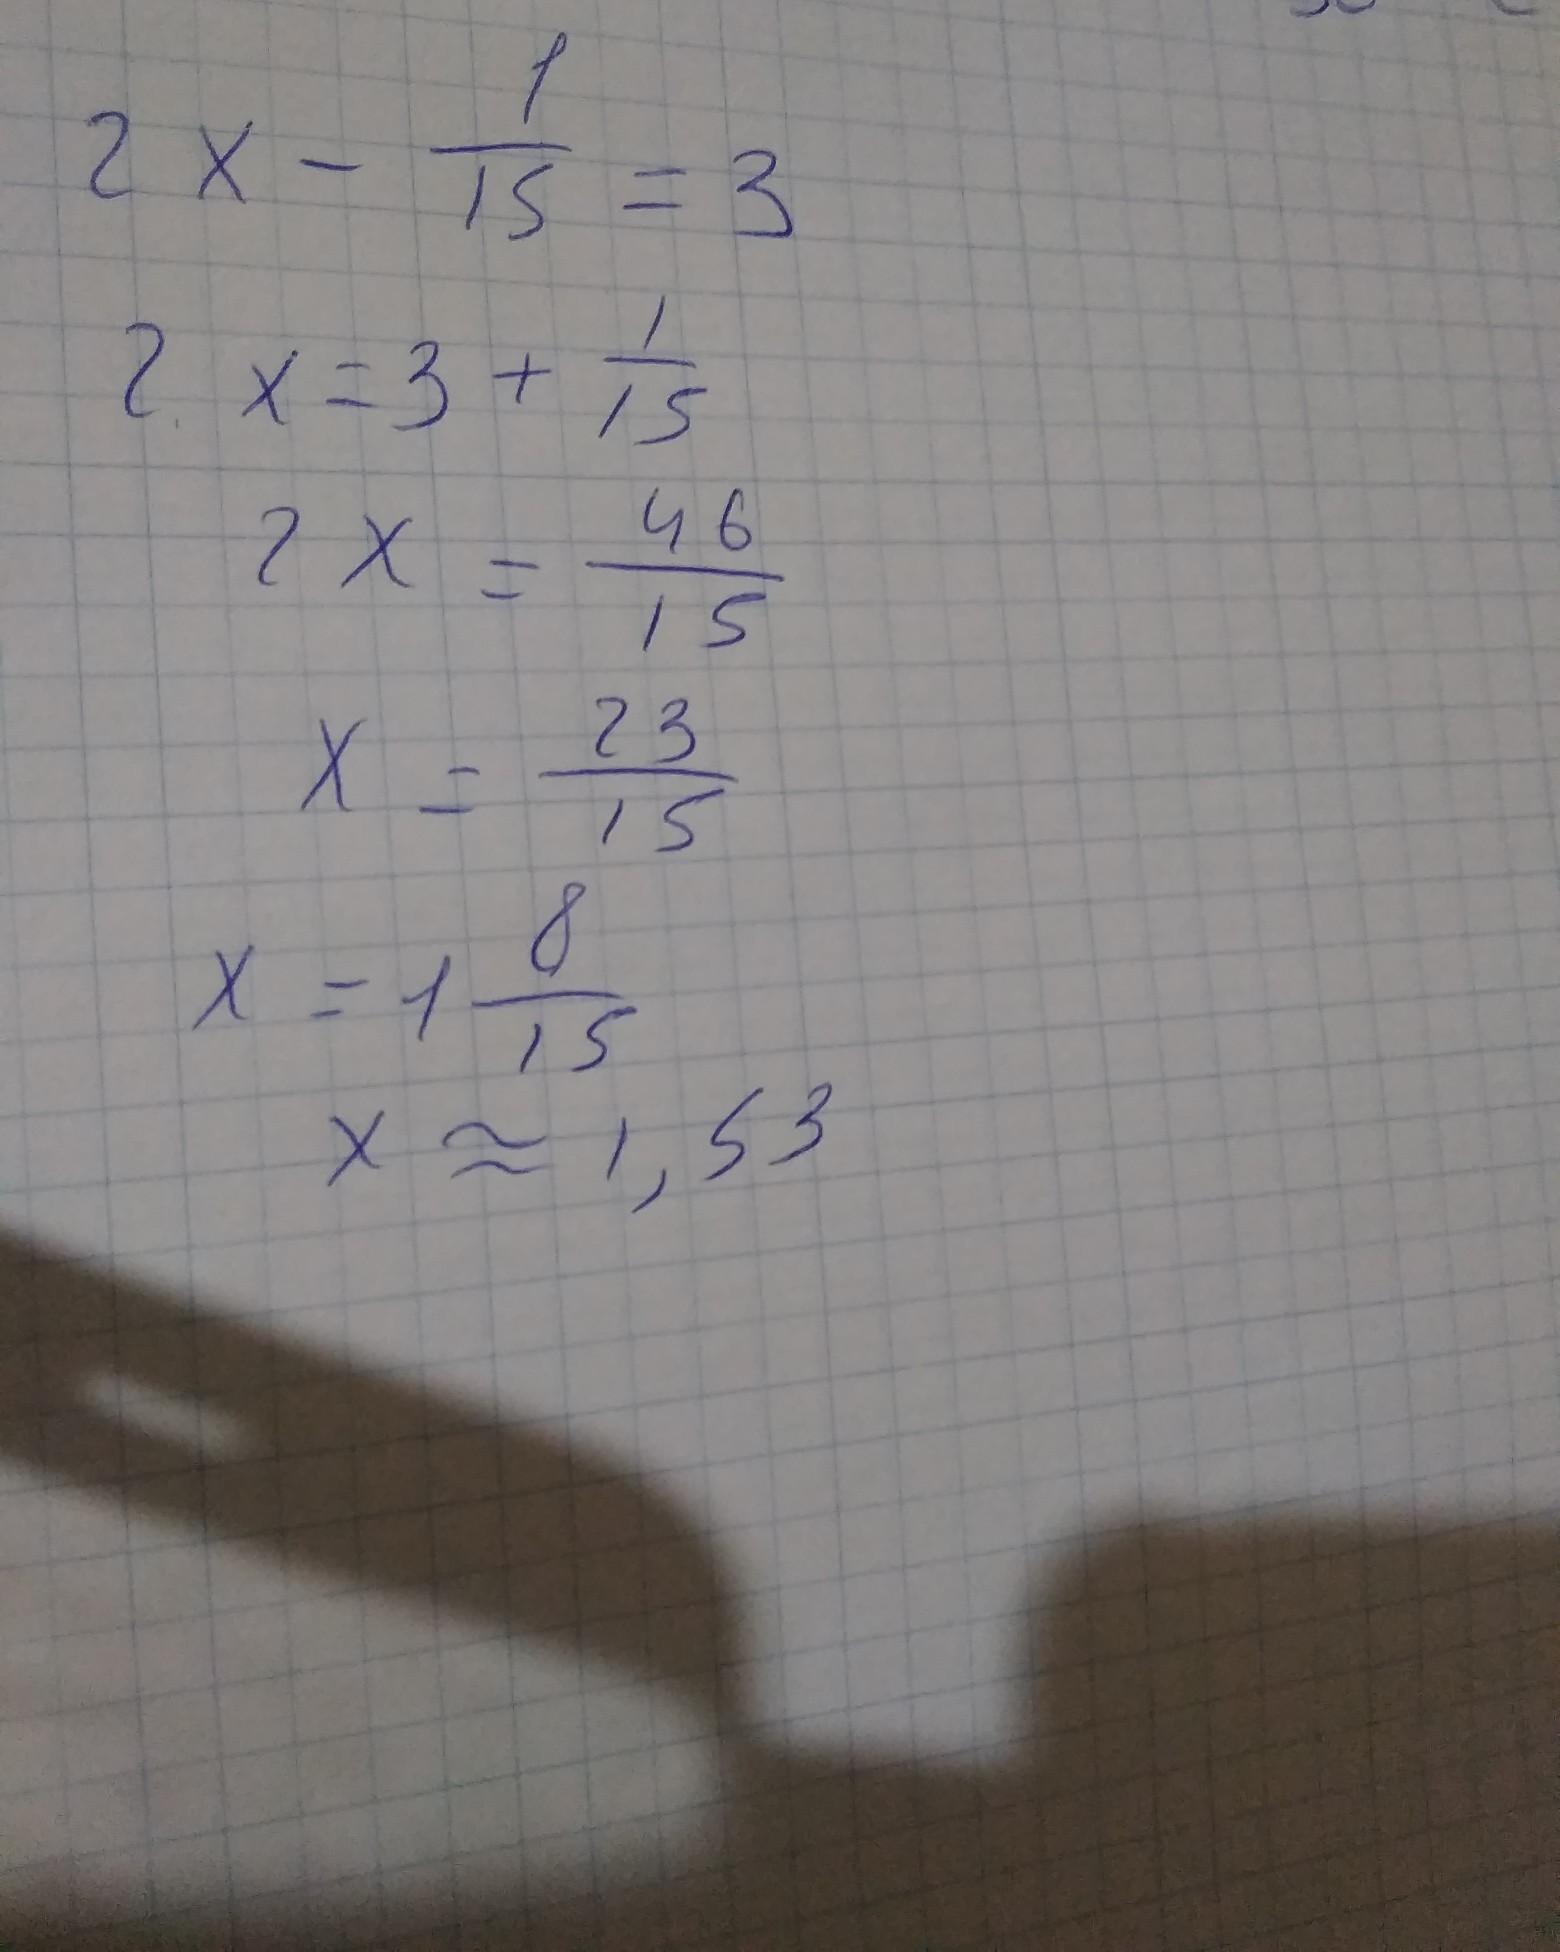 2x - 1/15 = 3
2x = 3 + 1/15
2x = 46/15
x = 23/15
x = 1 8/15
x ≈ 1,53